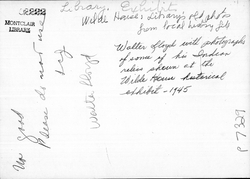 MONTCLAIR
LIBRARY
Library. Exhibit
Wilde House; Library's old photos
from local history file
Walter Lloyd with photographs
of some of his Indian
relics shown at the
Wilde House historical
exhibit - 1945
Not good
Please do not use
Walter Lloyd
P 7327